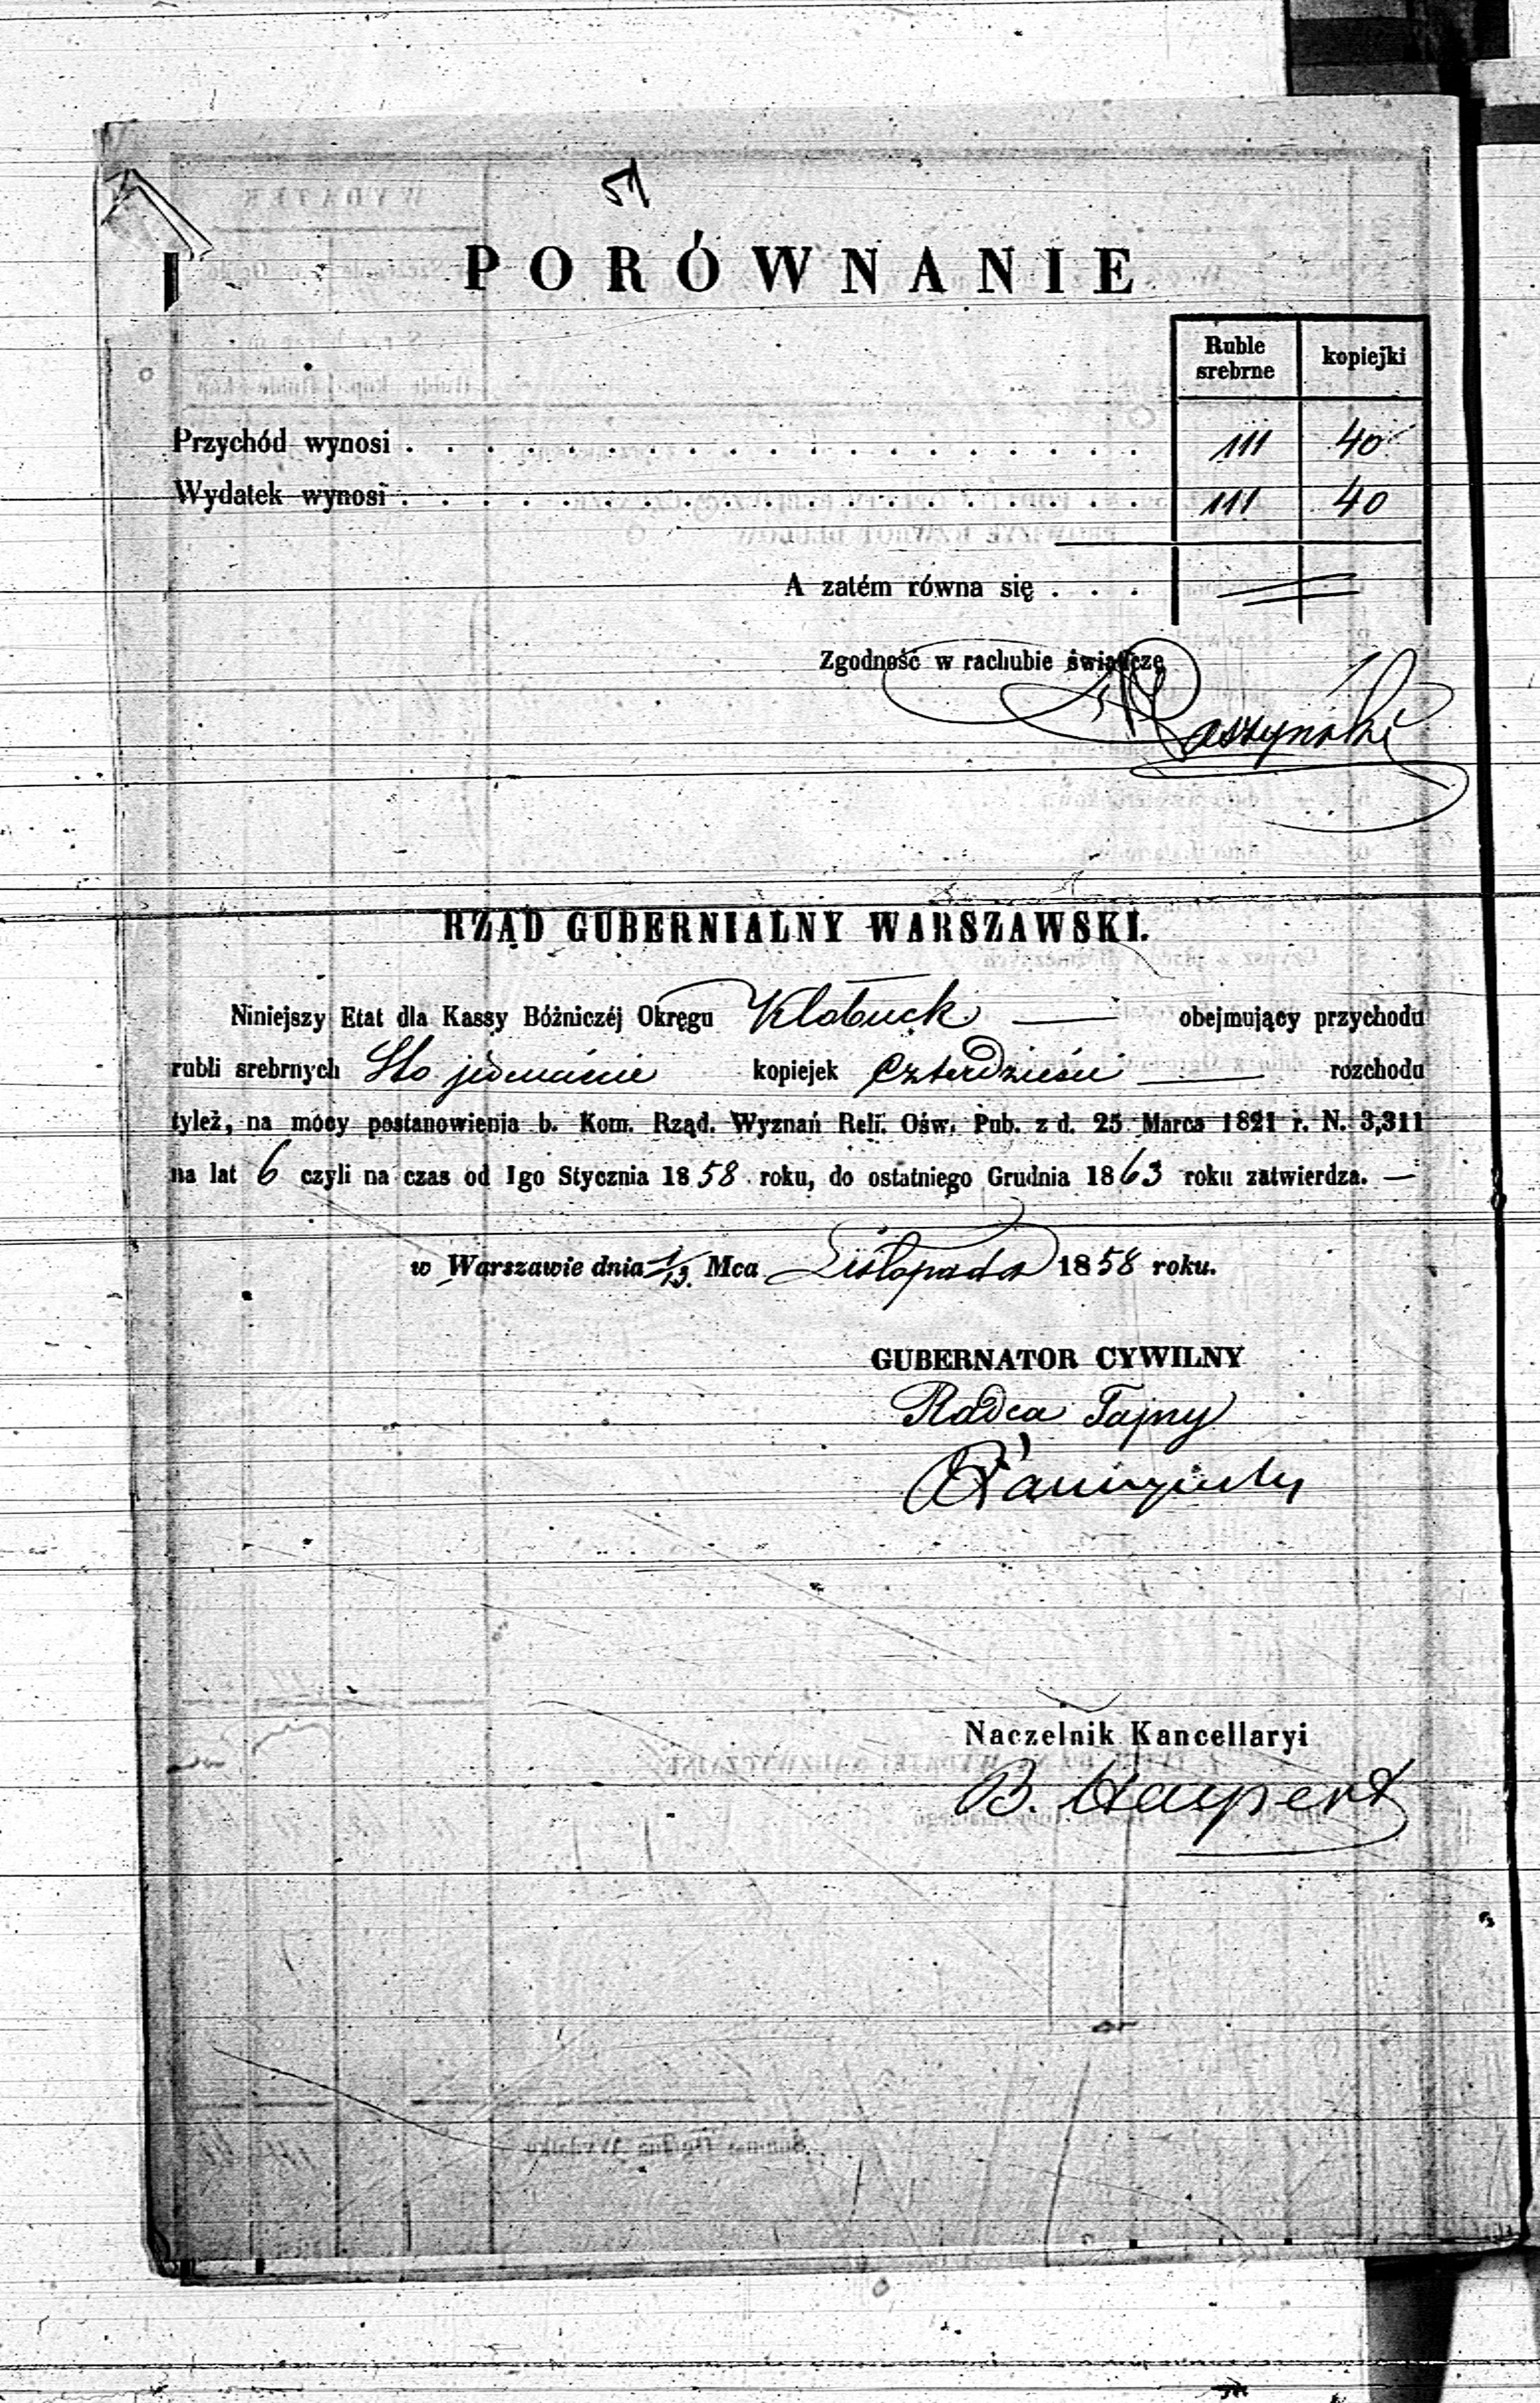 51
PORÓWNANIE
Ruble srebrne kopiejki
Przychód wynosi . . . . . . . . . . . . . . . . . . . 111 40
Wydatek wynosi . . . . . . . . . . . . . . . . . . . 111 40
A zatém równa się . . .
Zgodność w rachubie świadczę
RZĄD GUBERNIALNY WARSZAWSKI.
Niniejszy Etat dla Kassy Bóżniczéj Okręgu Kłobuck — obejmujący przychodu
rubli srebrnych Sto jedenaście kopiejek czterdzieści — rozchodu
tyleż, na mocy postanowienia b. Kom. Rząd. Wyznań Reli. Ośw. Pub. z d. 25 Marca 1821 r. N. 3,311
na lat 6 czyli na czas od 1go Stycznia 1858 roku, do ostatniego Grudnia 1863 roku zatwierdza. —
w Warszawie dnia 1/13. Mca Listopada 1858 roku.
GUBERNATOR CYWILNY
Radca Tajny
Naczelnik Kancellaryi
B. Halpert